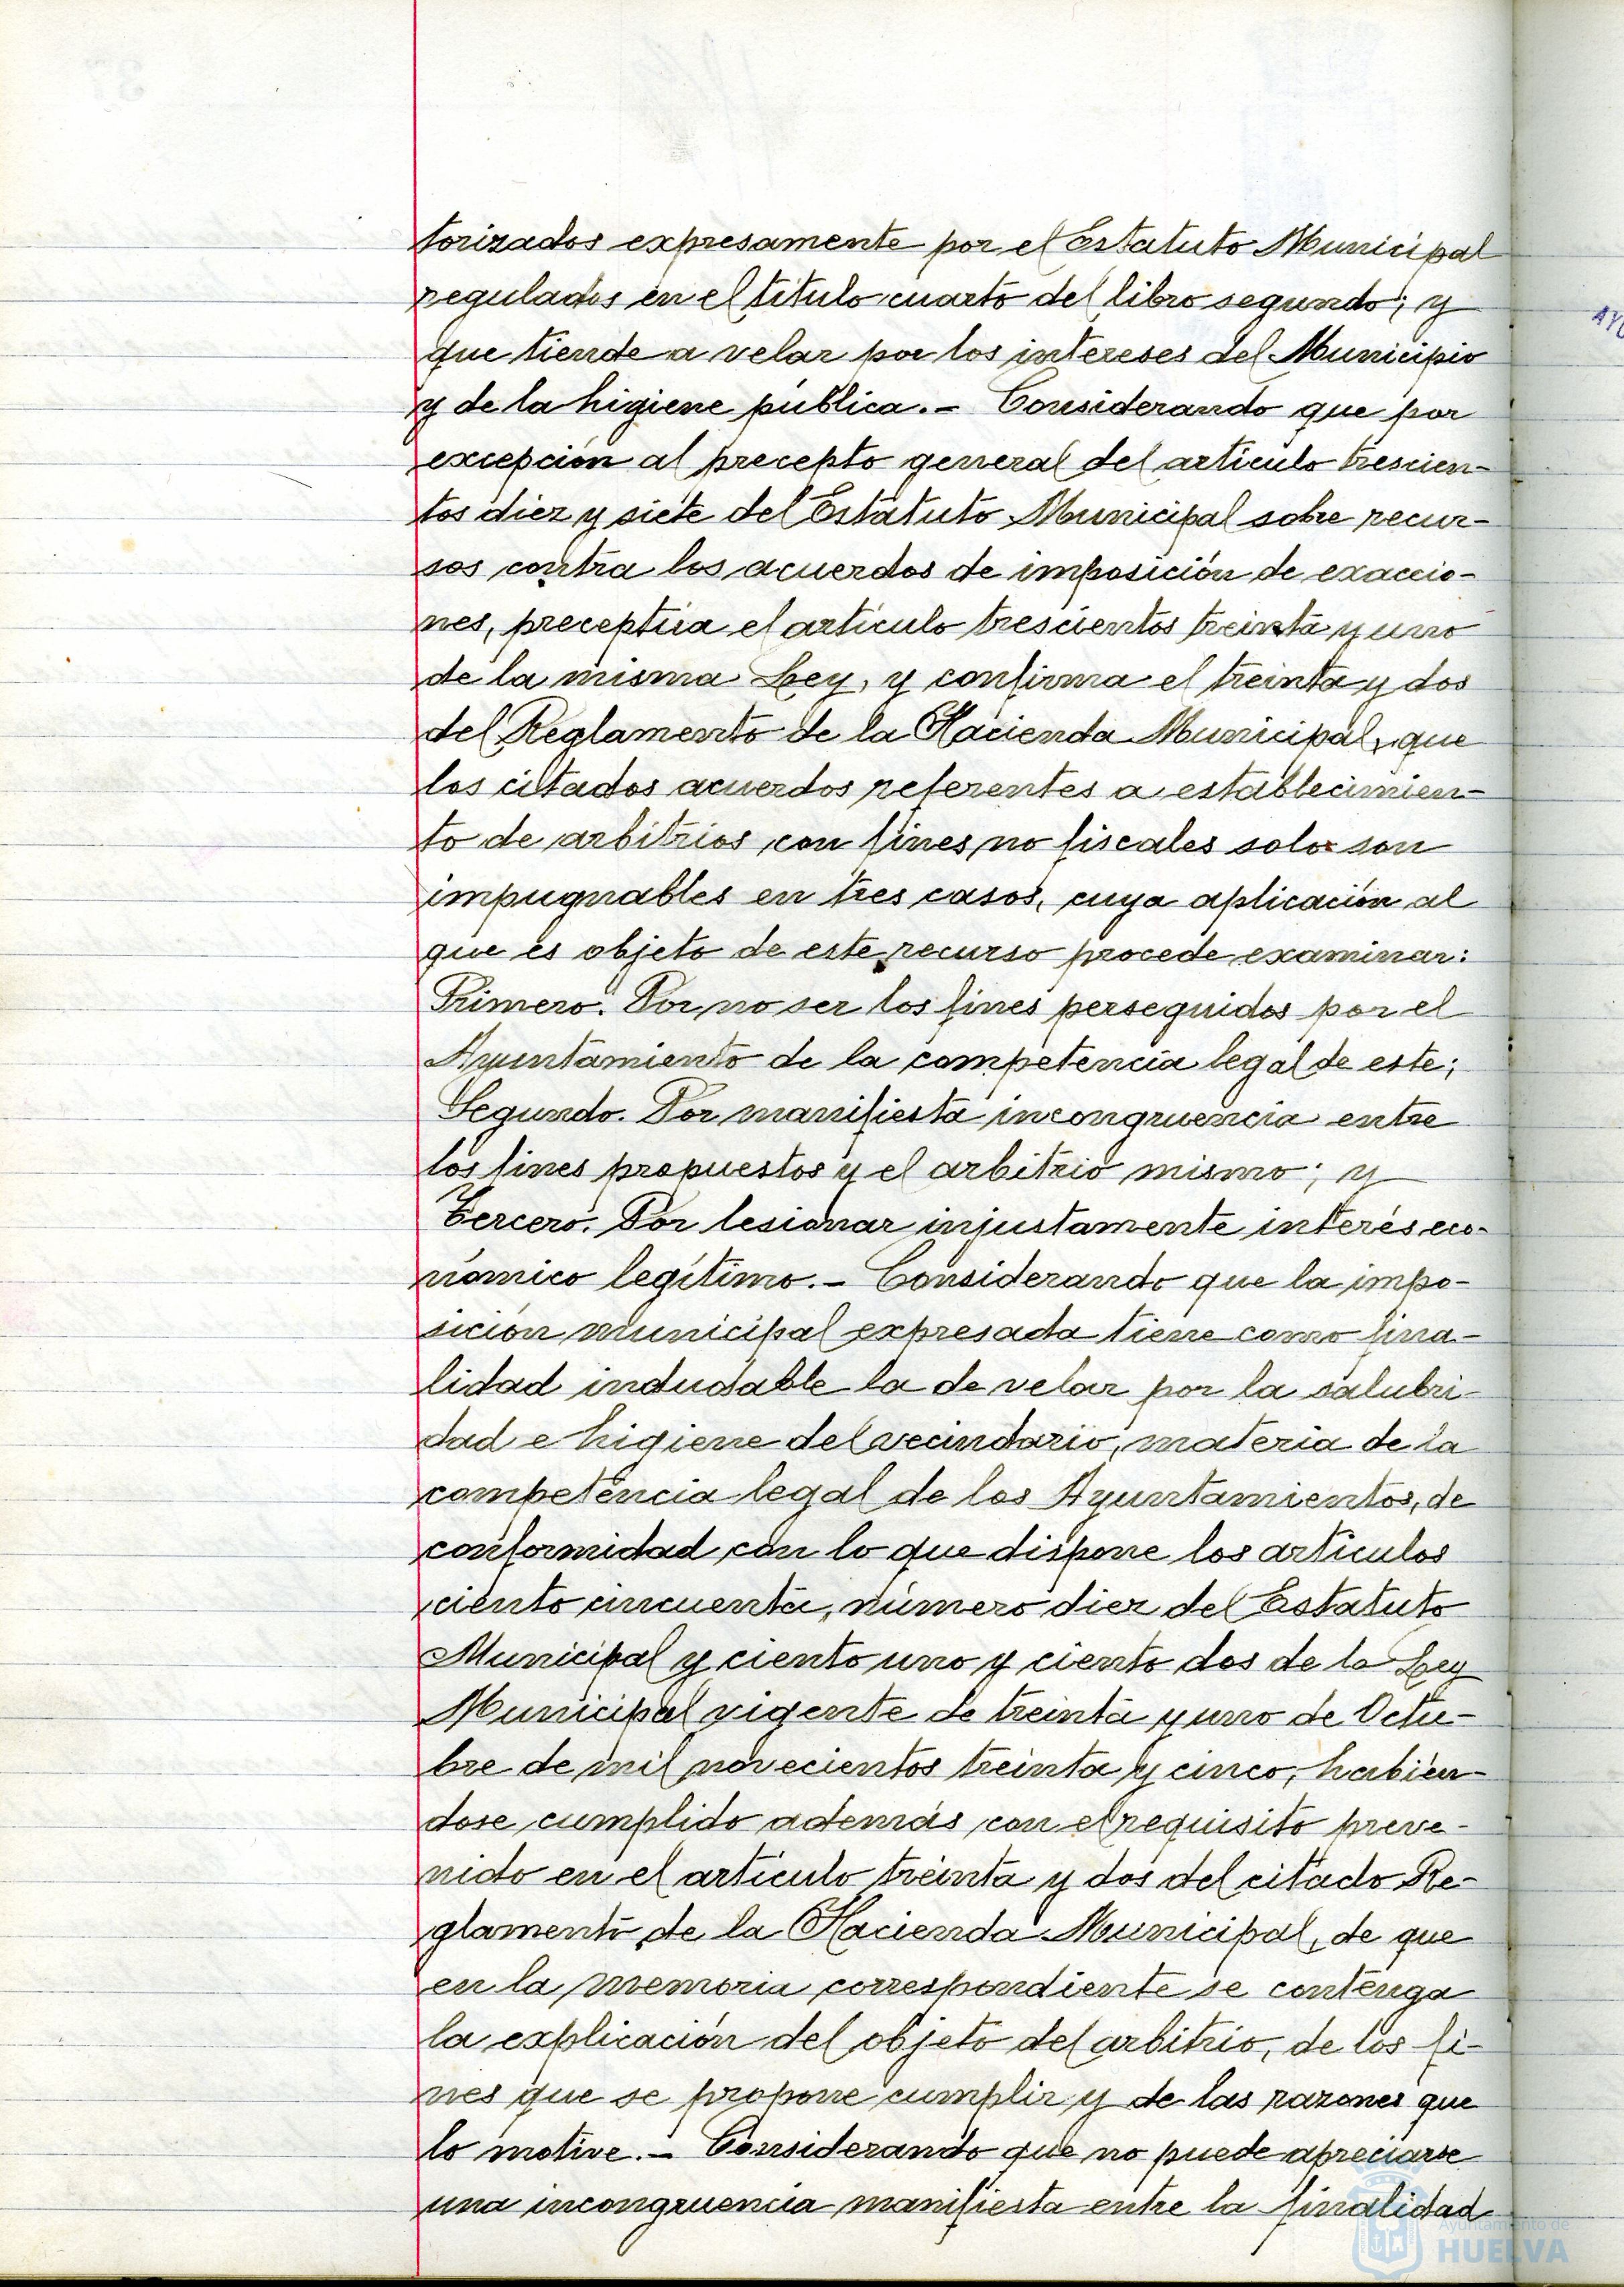 torizados expresamente por el Estatuto Municipal
regulados en el titulo cuarto del libro segundo; y
que tiende a velar por los intereses del Municipio
y de la higiene pública.- Considerando que por
excepción al precepto general del artículo trescien-
tos diez y siete del Estatuto Municipal sobre recur-
sos contra los acuerdos de imposición de exaccio-
nes, preceptúa el artículo trescientos treinta y uno
de la misma Ley, y confirma el treinta y dos
del Reglamento de la Hacienda Municipal, que
los citados acuerdos referentes a establecimien-
to de arbitrios con fines no fiscales solo son
impugnables en tres casos, cuya aplicación al
que es objeto de este recurso procede examinar:
Primero. Por no ser los fines perseguidos por el
Ayuntamiento de la competencia legal de este;
Segundo. Por manifiesta incongruencia entre
los fines propuestos y el arbitrio mismo; y
Tercero. Por lesionar injustamente interés eco-
nómico legítimo.- Considerando que la impo-
sición municipal expresada tiene como fina-
lidad indudable la de velar por la salubri-
dad e higiene del vecindario, materia de la
competencia legal de los Ayuntamientos, de
conformidad con lo que dispone los artículos
ciento cincuenta, número diez del Estatuto
Municipal y ciento uno y ciento dos de la Ley
Municipal vigente de treinta y uno de Octu-
bre de mil novecientos treinta y cinco, habién-
dose cumplido además con el requisito preve-
nido en el artículo treinta y dos del citado Re-
glamento de la Hacienda Municipal, de que
en la memoria correspondiente se contenga
la explicación del objeto del arbitrio, de los fi-
nes que se propone cumplir y de las razones que
lo motive.- Considerando que no puede apreciarse
una incongruencia manifiesta entre la finalidad
Ayuntamiento de
HUELVA